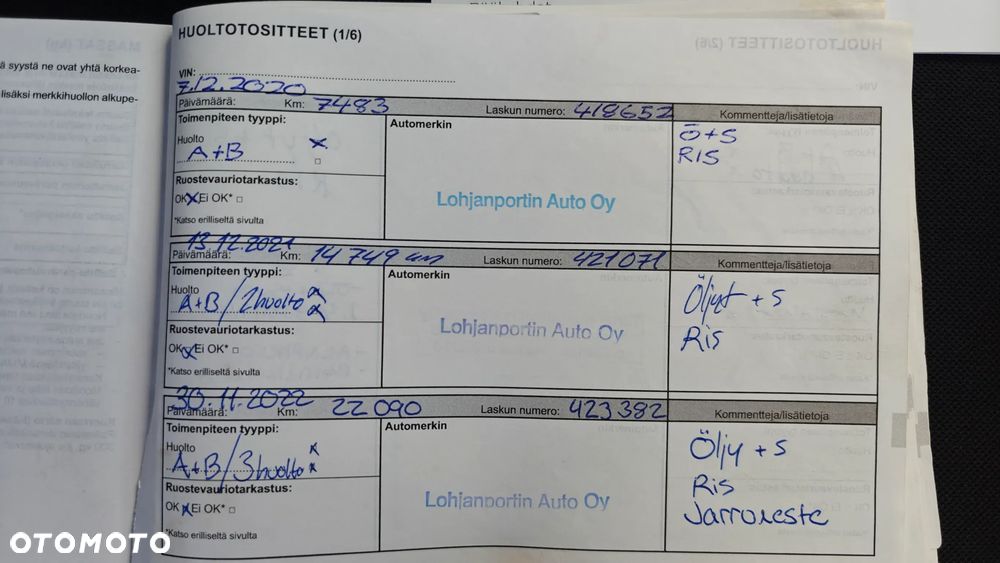 HUOLTOTOSITTEET (1/6)
ä syystä ne ovat yhtä korkea-
lisäksi merkkihuollon alkupe-
VIN:
7.12.2020
Päivämäärä: Km: 7483 Laskun numero: 418652 Kommentteja/lisätietoja
Toimenpiteen tyyppi: Automerkin
Huolto
A+B x
Ö+S
RIS
Ruostevauriotarkastus:
OK x Ei OK* □
*Katso erilliseltä sivulta
Lohjanportin Auto Oy
13.12.2021
Päivämäärä: Km: 14 749 km Laskun numero: 421071 Kommentteja/lisätietoja
Toimenpiteen tyyppi: Automerkin
Huolto
A+B/2huolto x x
Öljyt + S
Ris
Ruostevauriotarkastus:
OK x Ei OK* □
*Katso erilliseltä sivulta
Lohjanportin Auto Oy
30.11.2022
Päivämäärä: Km: 22 090 Laskun numero: 423 382 Kommentteja/lisätietoja
Toimenpiteen tyyppi: Automerkin
Huolto
A+B/3huolto x x
Öljy + S
Ris
Jarruneste
Ruostevauriotarkastus:
OK x Ei OK* □
*Katso erilliseltä sivulta
Lohjanportin Auto Oy
OTOMOTO